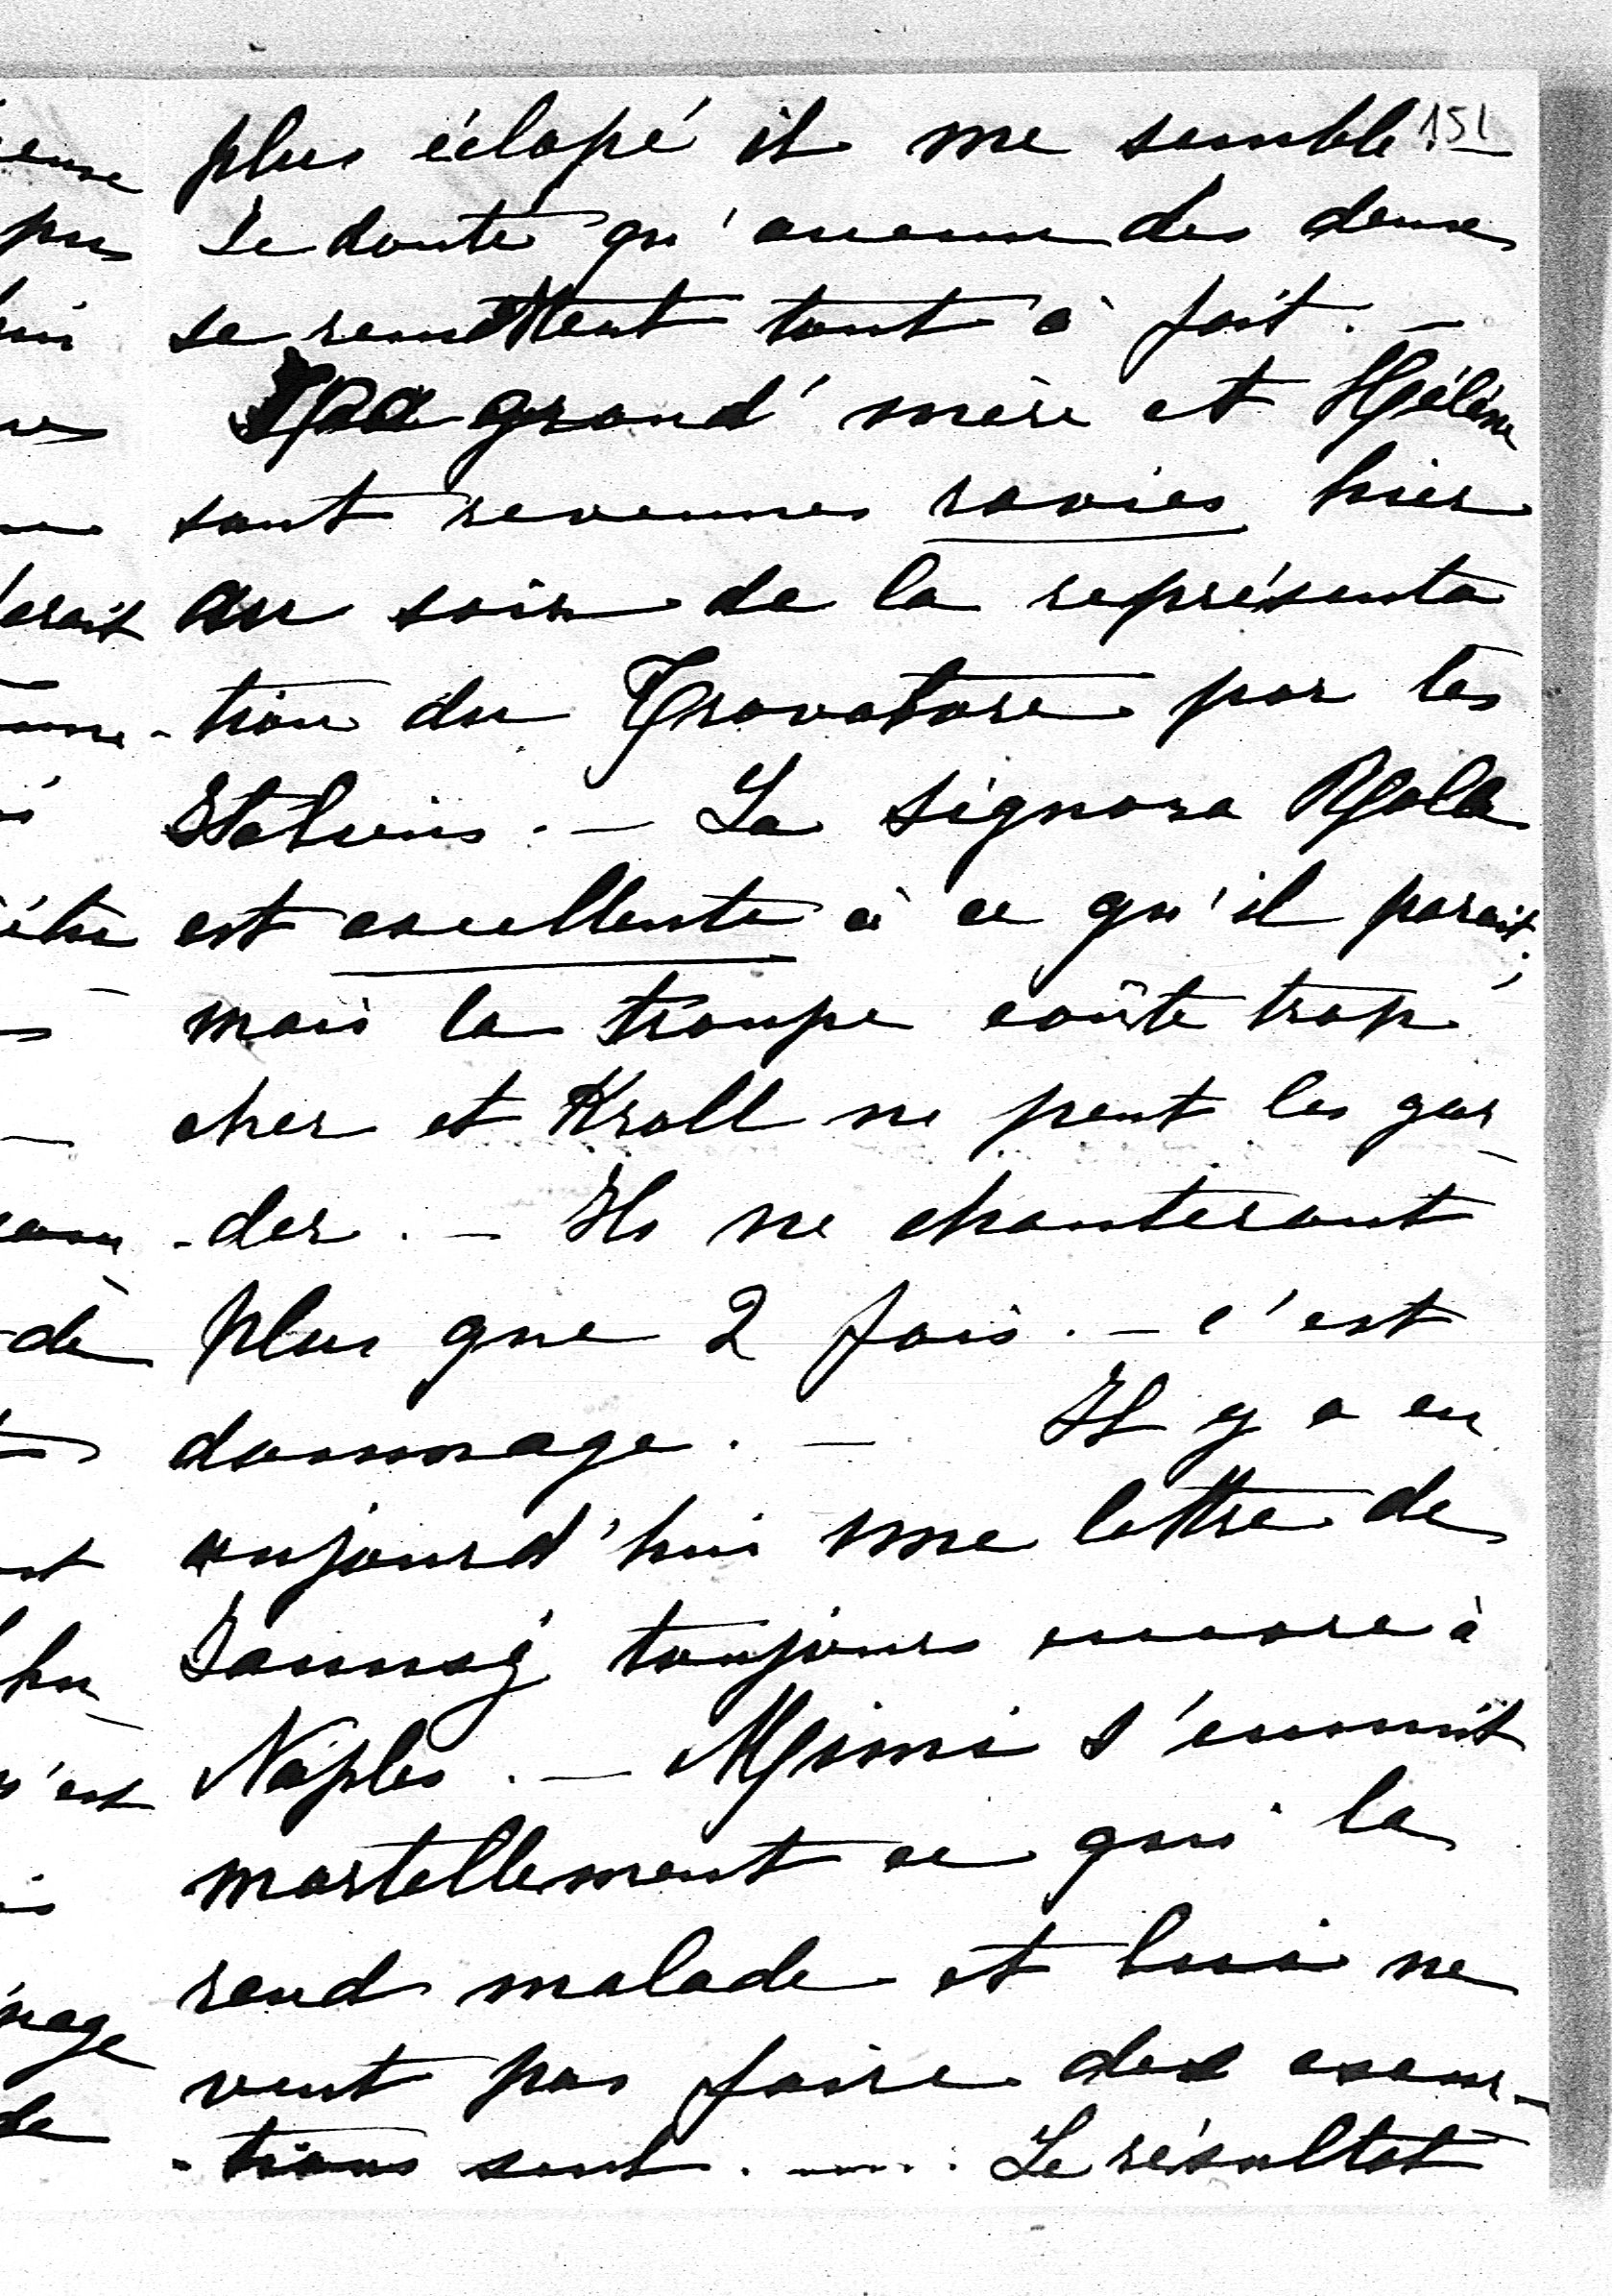 151
plus éclopé il me semble –
Je doute qu'aucun des deux
se remettent tout à fait. –
Ta grand'mère et Hélène
sont revenues ravies hier
au soir de la représenta
-tion du Trovatore par les
Italiens. – La Signora
est excellente à ce qu'il parait;
mais la troupe coûte trop
cher et Kroll ne peut les gar-
-der. – Ils ne chanteront
plus que 2 fois. – c'est
dommage. – Il y a eu
aujourd'hui une lettre de
toujours encore à
Naples. – Mimi s'ennuit
mortellement ce qui la
rend malade et lui ne
veut pas faire des excur-
-tions seul. ..... Le résultat